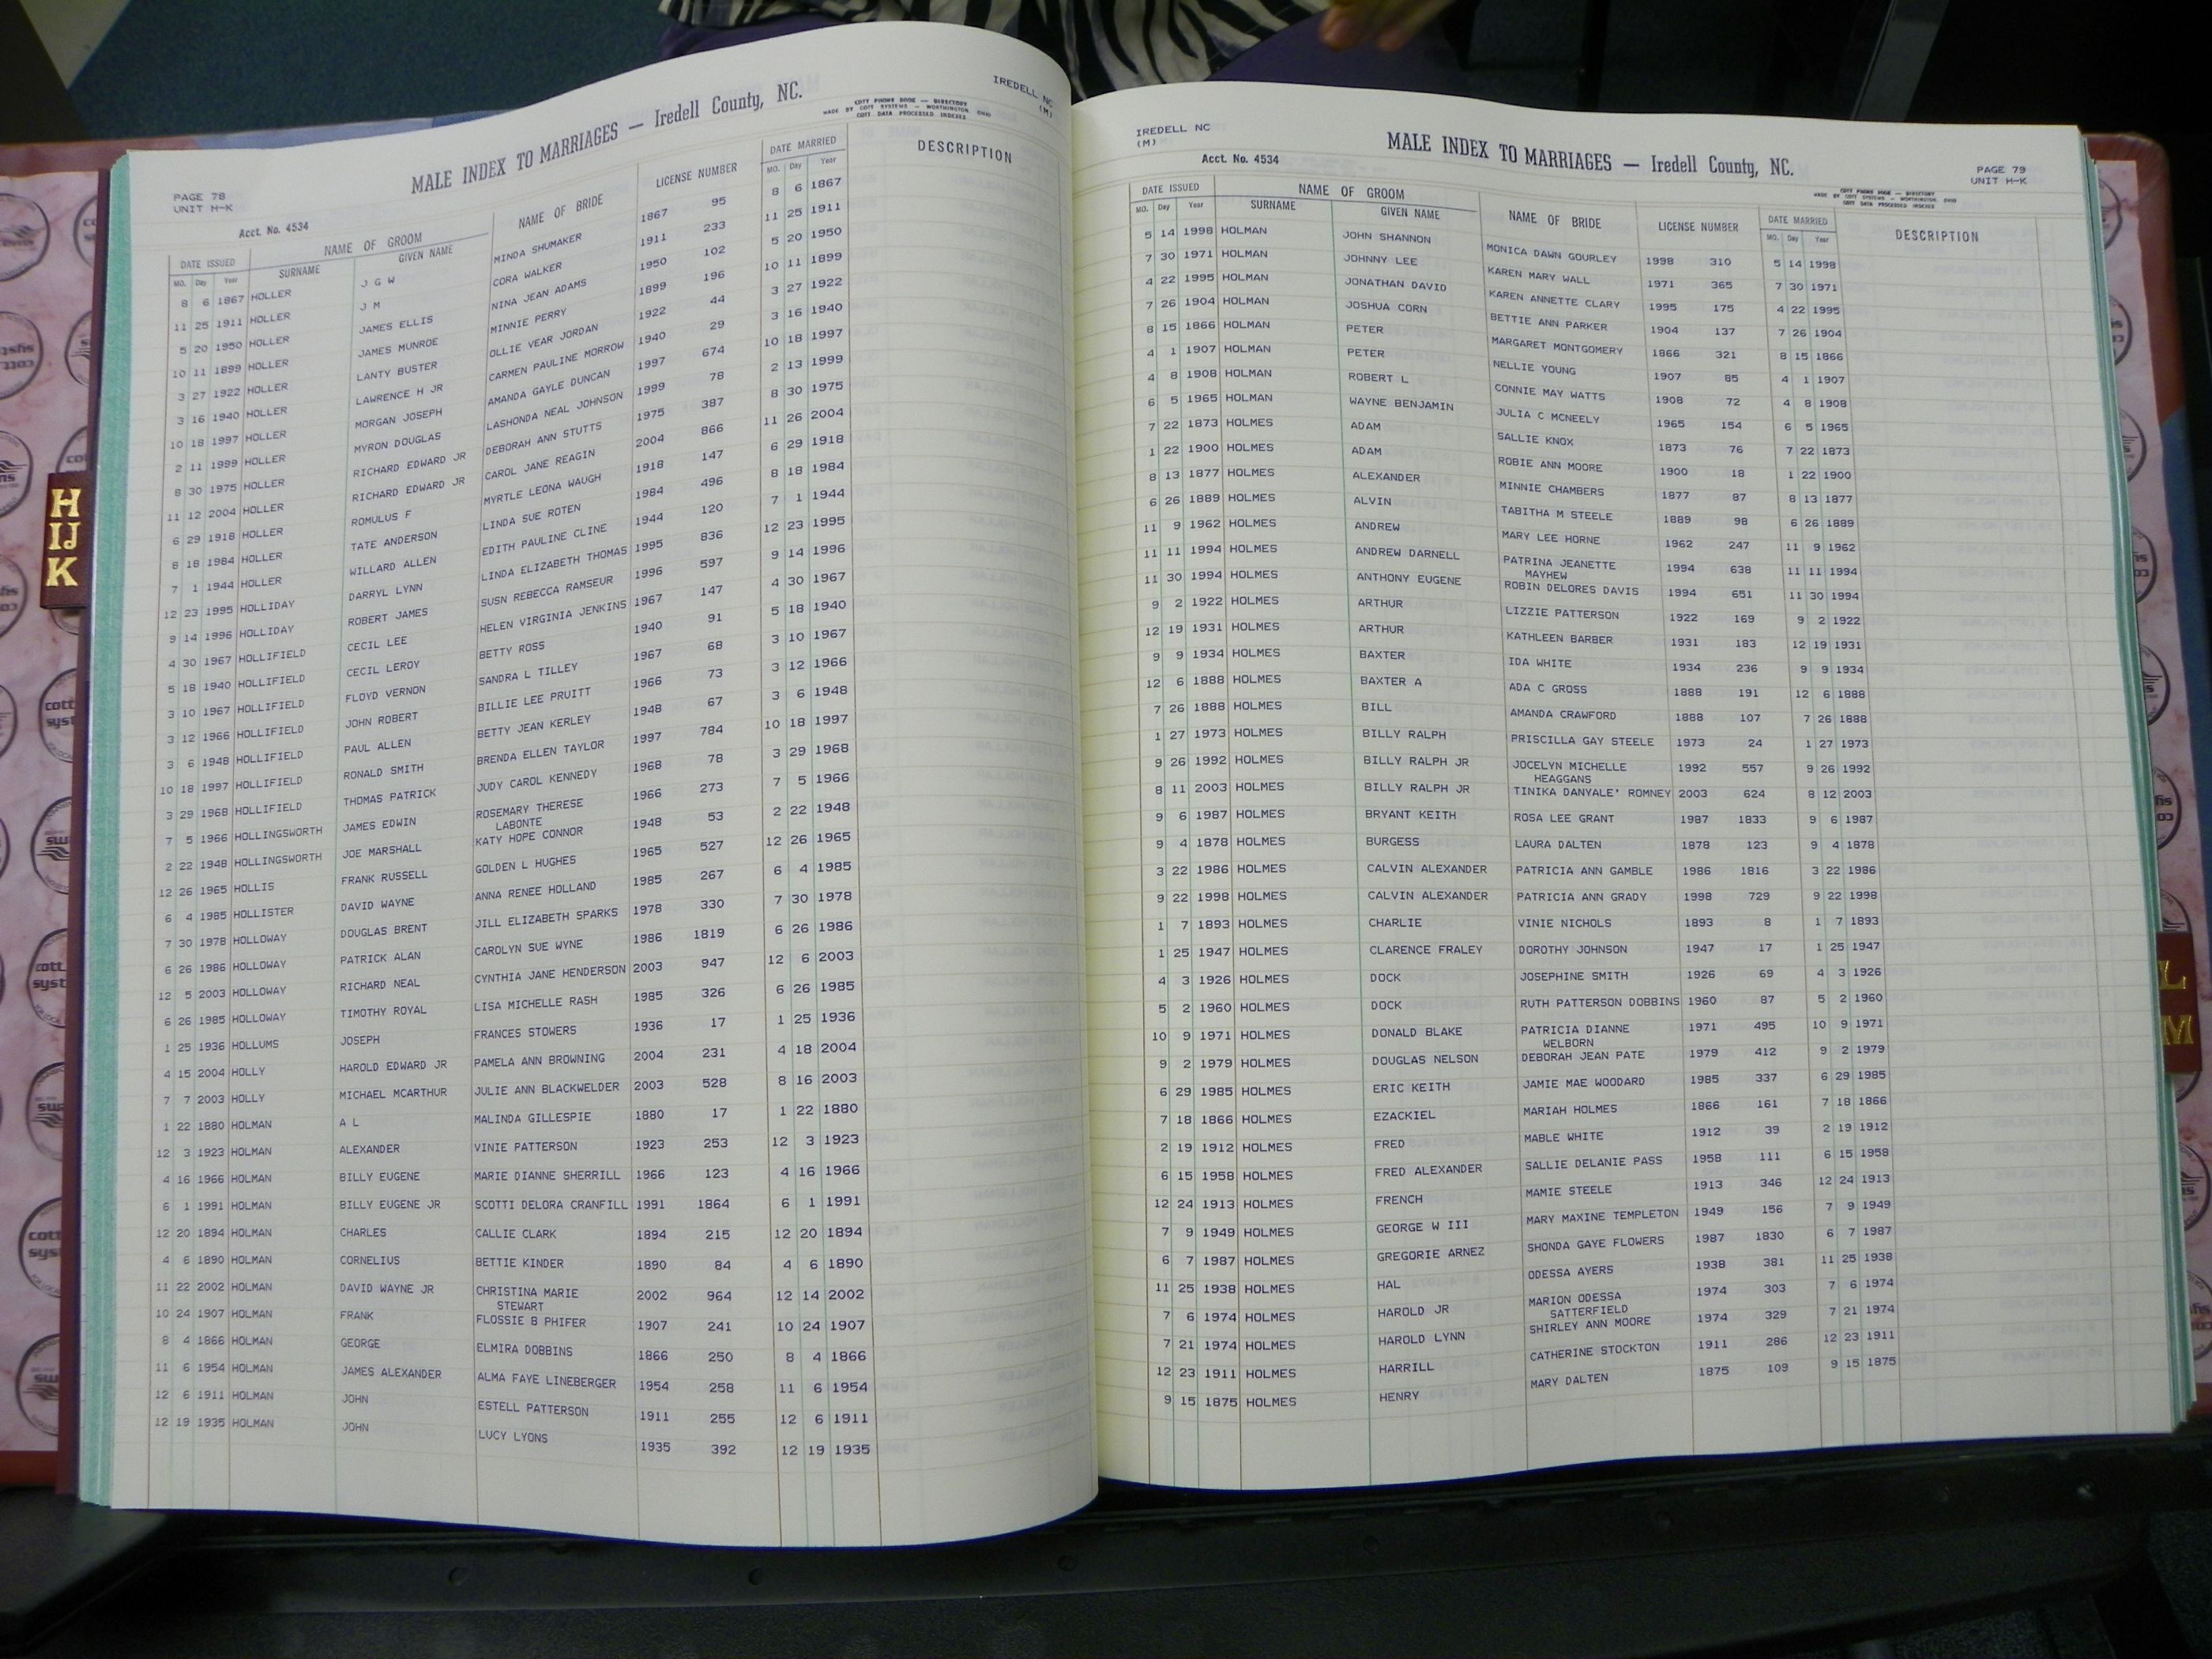 IREDELL NC
(M)
MALE INDEX TO MARRIAGES — Iredell County, NC.
COTT PHONE BOOK — DIRECTORY
MADE BY COTT SYSTEMS — WORTHINGTON, OHIO
COTT DATA PROCESSED INDEXES
PAGE 78
UNIT H-K
Acct. No. 4534
DATE ISSUED NAME OF GROOM NAME OF BRIDE LICENSE NUMBER DATE MARRIED DESCRIPTION
MO. Day Year SURNAME GIVEN NAME MO. Day Year
8 6 1867 HOLLER J G W MINDA SHUMAKER 1867 95 8 6 1867
11 25 1911 HOLLER J M CORA WALKER 1911 233 11 25 1911
5 20 1950 HOLLER JAMES ELLIS NINA JEAN ADAMS 1950 102 5 20 1950
10 11 1899 HOLLER JAMES MUNROE MINNIE PERRY 1899 196 10 11 1899
3 27 1922 HOLLER LANTY BUSTER OLLIE VEAR JORDAN 1922 44 3 27 1922
3 16 1940 HOLLER LAWRENCE H JR CARMEN PAULINE MORROW 1940 29 3 16 1940
10 18 1997 HOLLER MORGAN JOSEPH AMANDA GAYLE DUNCAN 1997 674 10 18 1997
2 11 1999 HOLLER MYRON DOUGLAS LASHONDA NEAL JOHNSON 1999 78 2 13 1999
8 30 1975 HOLLER RICHARD EDWARD JR DEBORAH ANN STUTTS 1975 387 8 30 1975
11 12 2004 HOLLER RICHARD EDWARD JR CAROL JANE REAGIN 2004 866 11 26 2004
6 29 1918 HOLLER ROMULUS F MYRTLE LEONA WAUGH 1918 147 6 29 1918
8 18 1984 HOLLER TATE ANDERSON LINDA SUE ROTEN 1984 496 8 18 1984
7 1 1944 HOLLER WILLARD ALLEN EDITH PAULINE CLINE 1944 120 7 1 1944
12 23 1995 HOLLIDAY DARRYL LYNN LINDA ELIZABETH THOMAS 1995 836 12 23 1995
9 14 1996 HOLLIDAY ROBERT JAMES SUSN REBECCA RAMSEUR 1996 597 9 14 1996
4 30 1967 HOLLIFIELD CECIL LEE HELEN VIRGINIA JENKINS 1967 147 4 30 1967
5 18 1940 HOLLIFIELD CECIL LEROY BETTY ROSS 1940 91 5 18 1940
3 10 1967 HOLLIFIELD FLOYD VERNON SANDRA L TILLEY 1967 68 3 10 1967
3 12 1966 HOLLIFIELD JOHN ROBERT BILLIE LEE PRUITT 1966 73 3 12 1966
3 6 1948 HOLLIFIELD PAUL ALLEN BETTY JEAN KERLEY 1948 67 3 6 1948
10 18 1997 HOLLIFIELD RONALD SMITH BRENDA ELLEN TAYLOR 1997 784 10 18 1997
3 29 1968 HOLLIFIELD THOMAS PATRICK JUDY CAROL KENNEDY 1968 78 3 29 1968
7 5 1966 HOLLINGSWORTH JAMES EDWIN ROSEMARY THERESE 1966 273 7 5 1966
LABONTE
2 22 1948 HOLLINGSWORTH JOE MARSHALL KATY HOPE CONNOR 1948 53 2 22 1948
12 26 1965 HOLLIS FRANK RUSSELL GOLDEN L HUGHES 1965 527 12 26 1965
6 4 1985 HOLLISTER DAVID WAYNE ANNA RENEE HOLLAND 1985 267 6 4 1985
7 30 1978 HOLLOWAY DOUGLAS BRENT JILL ELIZABETH SPARKS 1978 330 7 30 1978
6 26 1986 HOLLOWAY PATRICK ALAN CAROLYN SUE WYNE 1986 1819 6 26 1986
12 5 2003 HOLLOWAY RICHARD NEAL CYNTHIA JANE HENDERSON 2003 947 12 6 2003
6 26 1985 HOLLOWAY TIMOTHY ROYAL LISA MICHELLE RASH 1985 326 6 26 1985
1 25 1936 HOLLUMS JOSEPH FRANCES STOWERS 1936 17 1 25 1936
4 15 2004 HOLLY HAROLD EDWARD JR PAMELA ANN BROWNING 2004 231 4 18 2004
7 7 2003 HOLLY MICHAEL MCARTHUR JULIE ANN BLACKWELDER 2003 528 8 16 2003
1 22 1880 HOLMAN A L MALINDA GILLESPIE 1880 17 1 22 1880
12 3 1923 HOLMAN ALEXANDER VINIE PATTERSON 1923 253 12 3 1923
4 16 1966 HOLMAN BILLY EUGENE MARIE DIANNE SHERRILL 1966 123 4 16 1966
6 1 1991 HOLMAN BILLY EUGENE JR SCOTTI DELORA CRANFILL 1991 1864 6 1 1991
12 20 1894 HOLMAN CHARLES CALLIE CLARK 1894 215 12 20 1894
4 6 1890 HOLMAN CORNELIUS BETTIE KINDER 1890 84 4 6 1890
11 22 2002 HOLMAN DAVID WAYNE JR CHRISTINA MARIE 2002 964 12 14 2002
STEWART
10 24 1907 HOLMAN FRANK FLOSSIE B PHIFER 1907 241 10 24 1907
8 4 1866 HOLMAN GEORGE ELMIRA DOBBINS 1866 250 8 4 1866
11 6 1954 HOLMAN JAMES ALEXANDER ALMA FAYE LINEBERGER 1954 258 11 6 1954
12 6 1911 HOLMAN JOHN ESTELL PATTERSON 1911 255 12 6 1911
12 19 1935 HOLMAN JOHN LUCY LYONS 1935 392 12 19 1935
IREDELL NC
(M)
Acct. No. 4534
MALE INDEX TO MARRIAGES — Iredell County, NC.
PAGE 79
UNIT H-K
COTT PHONE BOOK — DIRECTORY
MADE BY COTT SYSTEMS — WORTHINGTON, OHIO
COTT DATA PROCESSED INDEXES
DATE ISSUED NAME OF GROOM NAME OF BRIDE LICENSE NUMBER DATE MARRIED DESCRIPTION
MO. Day Year SURNAME GIVEN NAME MO. Day Year
5 14 1998 HOLMAN JOHN SHANNON MONICA DAWN GOURLEY 1998 310 5 14 1998
7 30 1971 HOLMAN JOHNNY LEE KAREN MARY WALL 1971 365 7 30 1971
4 22 1995 HOLMAN JONATHAN DAVID KAREN ANNETTE CLARY 1995 175 4 22 1995
7 26 1904 HOLMAN JOSHUA CORN BETTIE ANN PARKER 1904 137 7 26 1904
8 15 1866 HOLMAN PETER MARGARET MONTGOMERY 1866 321 8 15 1866
4 1 1907 HOLMAN PETER NELLIE YOUNG 1907 85 4 1 1907
4 8 1908 HOLMAN ROBERT L CONNIE MAY WATTS 1908 72 4 8 1908
6 5 1965 HOLMAN WAYNE BENJAMIN JULIA C MCNEELY 1965 154 6 5 1965
7 22 1873 HOLMES ADAM SALLIE KNOX 1873 76 7 22 1873
1 22 1900 HOLMES ADAM ROBIE ANN MOORE 1900 18 1 22 1900
8 13 1877 HOLMES ALEXANDER MINNIE CHAMBERS 1877 87 8 13 1877
6 26 1889 HOLMES ALVIN TABITHA M STEELE 1889 98 6 26 1889
11 9 1962 HOLMES ANDREW MARY LEE HORNE 1962 247 11 9 1962
11 11 1994 HOLMES ANDREW DARNELL PATRINA JEANETTE 1994 638 11 11 1994
MAYHEW
11 30 1994 HOLMES ANTHONY EUGENE ROBIN DELORES DAVIS 1994 651 11 30 1994
9 2 1922 HOLMES ARTHUR LIZZIE PATTERSON 1922 169 9 2 1922
12 19 1931 HOLMES ARTHUR KATHLEEN BARBER 1931 183 12 19 1931
9 9 1934 HOLMES BAXTER IDA WHITE 1934 236 9 9 1934
12 6 1888 HOLMES BAXTER A ADA C GROSS 1888 191 12 6 1888
7 26 1888 HOLMES BILL AMANDA CRAWFORD 1888 107 7 26 1888
1 27 1973 HOLMES BILLY RALPH PRISCILLA GAY STEELE 1973 24 1 27 1973
9 26 1992 HOLMES BILLY RALPH JR JOCELYN MICHELLE 1992 557 9 26 1992
HEAGGANS
8 11 2003 HOLMES BILLY RALPH JR TINIKA DANYALE' ROMNEY 2003 624 8 12 2003
9 6 1987 HOLMES BRYANT KEITH ROSA LEE GRANT 1987 1833 9 6 1987
9 4 1878 HOLMES BURGESS LAURA DALTEN 1878 123 9 4 1878
3 22 1986 HOLMES CALVIN ALEXANDER PATRICIA ANN GAMBLE 1986 1816 3 22 1986
9 22 1998 HOLMES CALVIN ALEXANDER PATRICIA ANN GRADY 1998 729 9 22 1998
1 7 1893 HOLMES CHARLIE VINIE NICHOLS 1893 8 1 7 1893
1 25 1947 HOLMES CLARENCE FRALEY DOROTHY JOHNSON 1947 17 1 25 1947
4 3 1926 HOLMES DOCK JOSEPHINE SMITH 1926 69 4 3 1926
5 2 1960 HOLMES DOCK RUTH PATTERSON DOBBINS 1960 87 5 2 1960
10 9 1971 HOLMES DONALD BLAKE PATRICIA DIANNE 1971 495 10 9 1971
WELBORN
9 2 1979 HOLMES DOUGLAS NELSON DEBORAH JEAN PATE 1979 412 9 2 1979
6 29 1985 HOLMES ERIC KEITH JAMIE MAE WOODARD 1985 337 6 29 1985
7 18 1866 HOLMES EZACKIEL MARIAH HOLMES 1866 161 7 18 1866
2 19 1912 HOLMES FRED MABLE WHITE 1912 39 2 19 1912
6 15 1958 HOLMES FRED ALEXANDER SALLIE DELANIE PASS 1958 111 6 15 1958
12 24 1913 HOLMES FRENCH MAMIE STEELE 1913 346 12 24 1913
7 9 1949 HOLMES GEORGE W III MARY MAXINE TEMPLETON 1949 156 7 9 1949
6 7 1987 HOLMES GREGORIE ARNEZ SHONDA GAYE FLOWERS 1987 1830 6 7 1987
11 25 1938 HOLMES HAL ODESSA AYERS 1938 381 11 25 1938
7 6 1974 HOLMES HAROLD JR MARION ODESSA 1974 303 7 6 1974
SATTERFIELD
7 21 1974 HOLMES HAROLD LYNN SHIRLEY ANN MOORE 1974 329 7 21 1974
12 23 1911 HOLMES HARRILL CATHERINE STOCKTON 1911 286 12 23 1911
9 15 1875 HOLMES HENRY MARY DALTEN 1875 109 9 15 1875
H
IJ
K
L
M